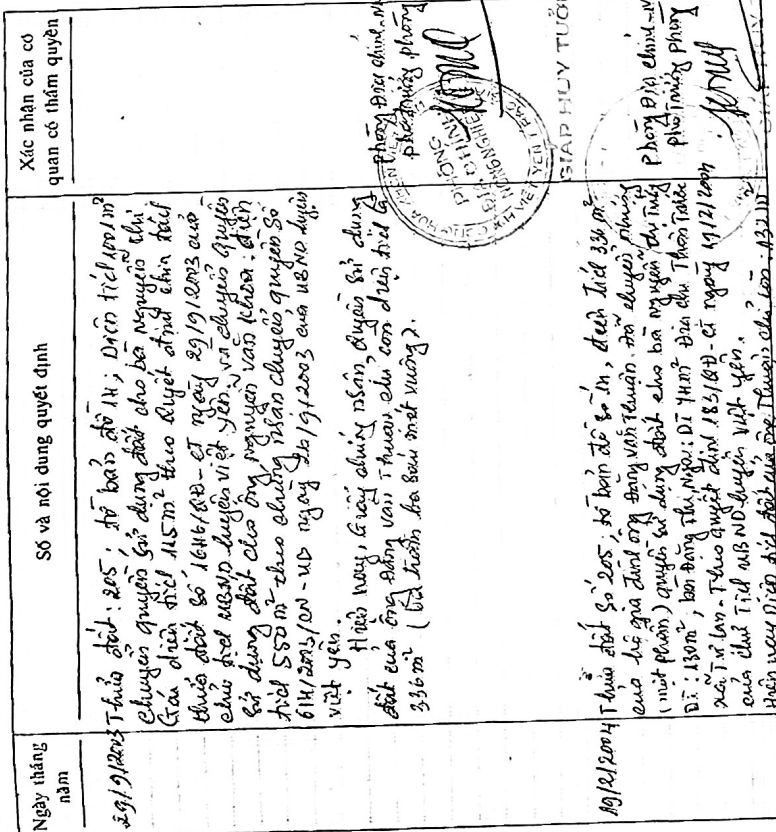 Ngày tháng năm
Số và nội dung quyết định
Xác nhận của cơ quan có thẩm quyền
29/9/2003
Thửa đất: 205; tờ bản đồ 14; Diện tích 1001 m²
chuyển quyền sử dụng đất cho bà Nguyễn Thị
Gái diện tích 115 m² theo Quyết định chia tách
thửa đất số 1646/QĐ-CT ngày 29/9/2003 của
chủ tịch UBND huyện Việt Yên, và chuyển quyền
sử dụng đất cho ông Nguyễn Văn Khoa: diện
tích 550 m² theo chứng nhận chuyển quyền số
614/2003/CN-UB ngày 26/9/2003 của UBND huyện
Việt Yên.
Hiện nay, Giấy chứng nhận quyền sử dụng
đất của ông Đặng Văn Thuận chỉ còn diện tích là
336 m² (ba trăm ba sáu mét vuông).
Phòng Địa chính-NN
phó trưởng phòng
PHÒNG
ĐỊA CHÍNH
NÔNG NGHIỆP
H VIỆT YÊN T BẮC
GIÁP HUY TƯỞ
19/2/2004
Thửa đất số 205, tờ bản đồ số 14, diện tích 336 m²
của hộ gia đình ông Đặng Văn Thuận. đã chuyển nhượng
(một phần) quyền sử dụng đất cho bà Nguyễn Thị
DT: 130 m², bà Đặng Thị Nga: DT 74 m² địa chỉ Thôn
xã Tự Lan. Theo quyết định 183/QĐ-CT ngày 19/2/2004
của Chủ Tịch UBND huyện Việt Yên.
Hiện nay Diện tích đất của ông Thuận chỉ còn: 132 m²
Phòng Địa chính-N
phó trưởng phòng